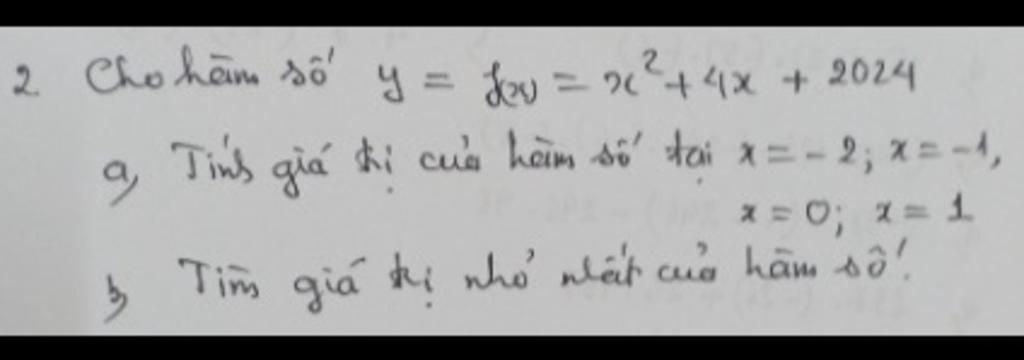 2 Cho hàm số y = f(x) = x² + 4x + 2024
a, Tính giá trị của hàm số tại x = - 2; x = -1,
x = 0; x = 1
b, Tìm giá trị nhỏ nhất của hàm số.